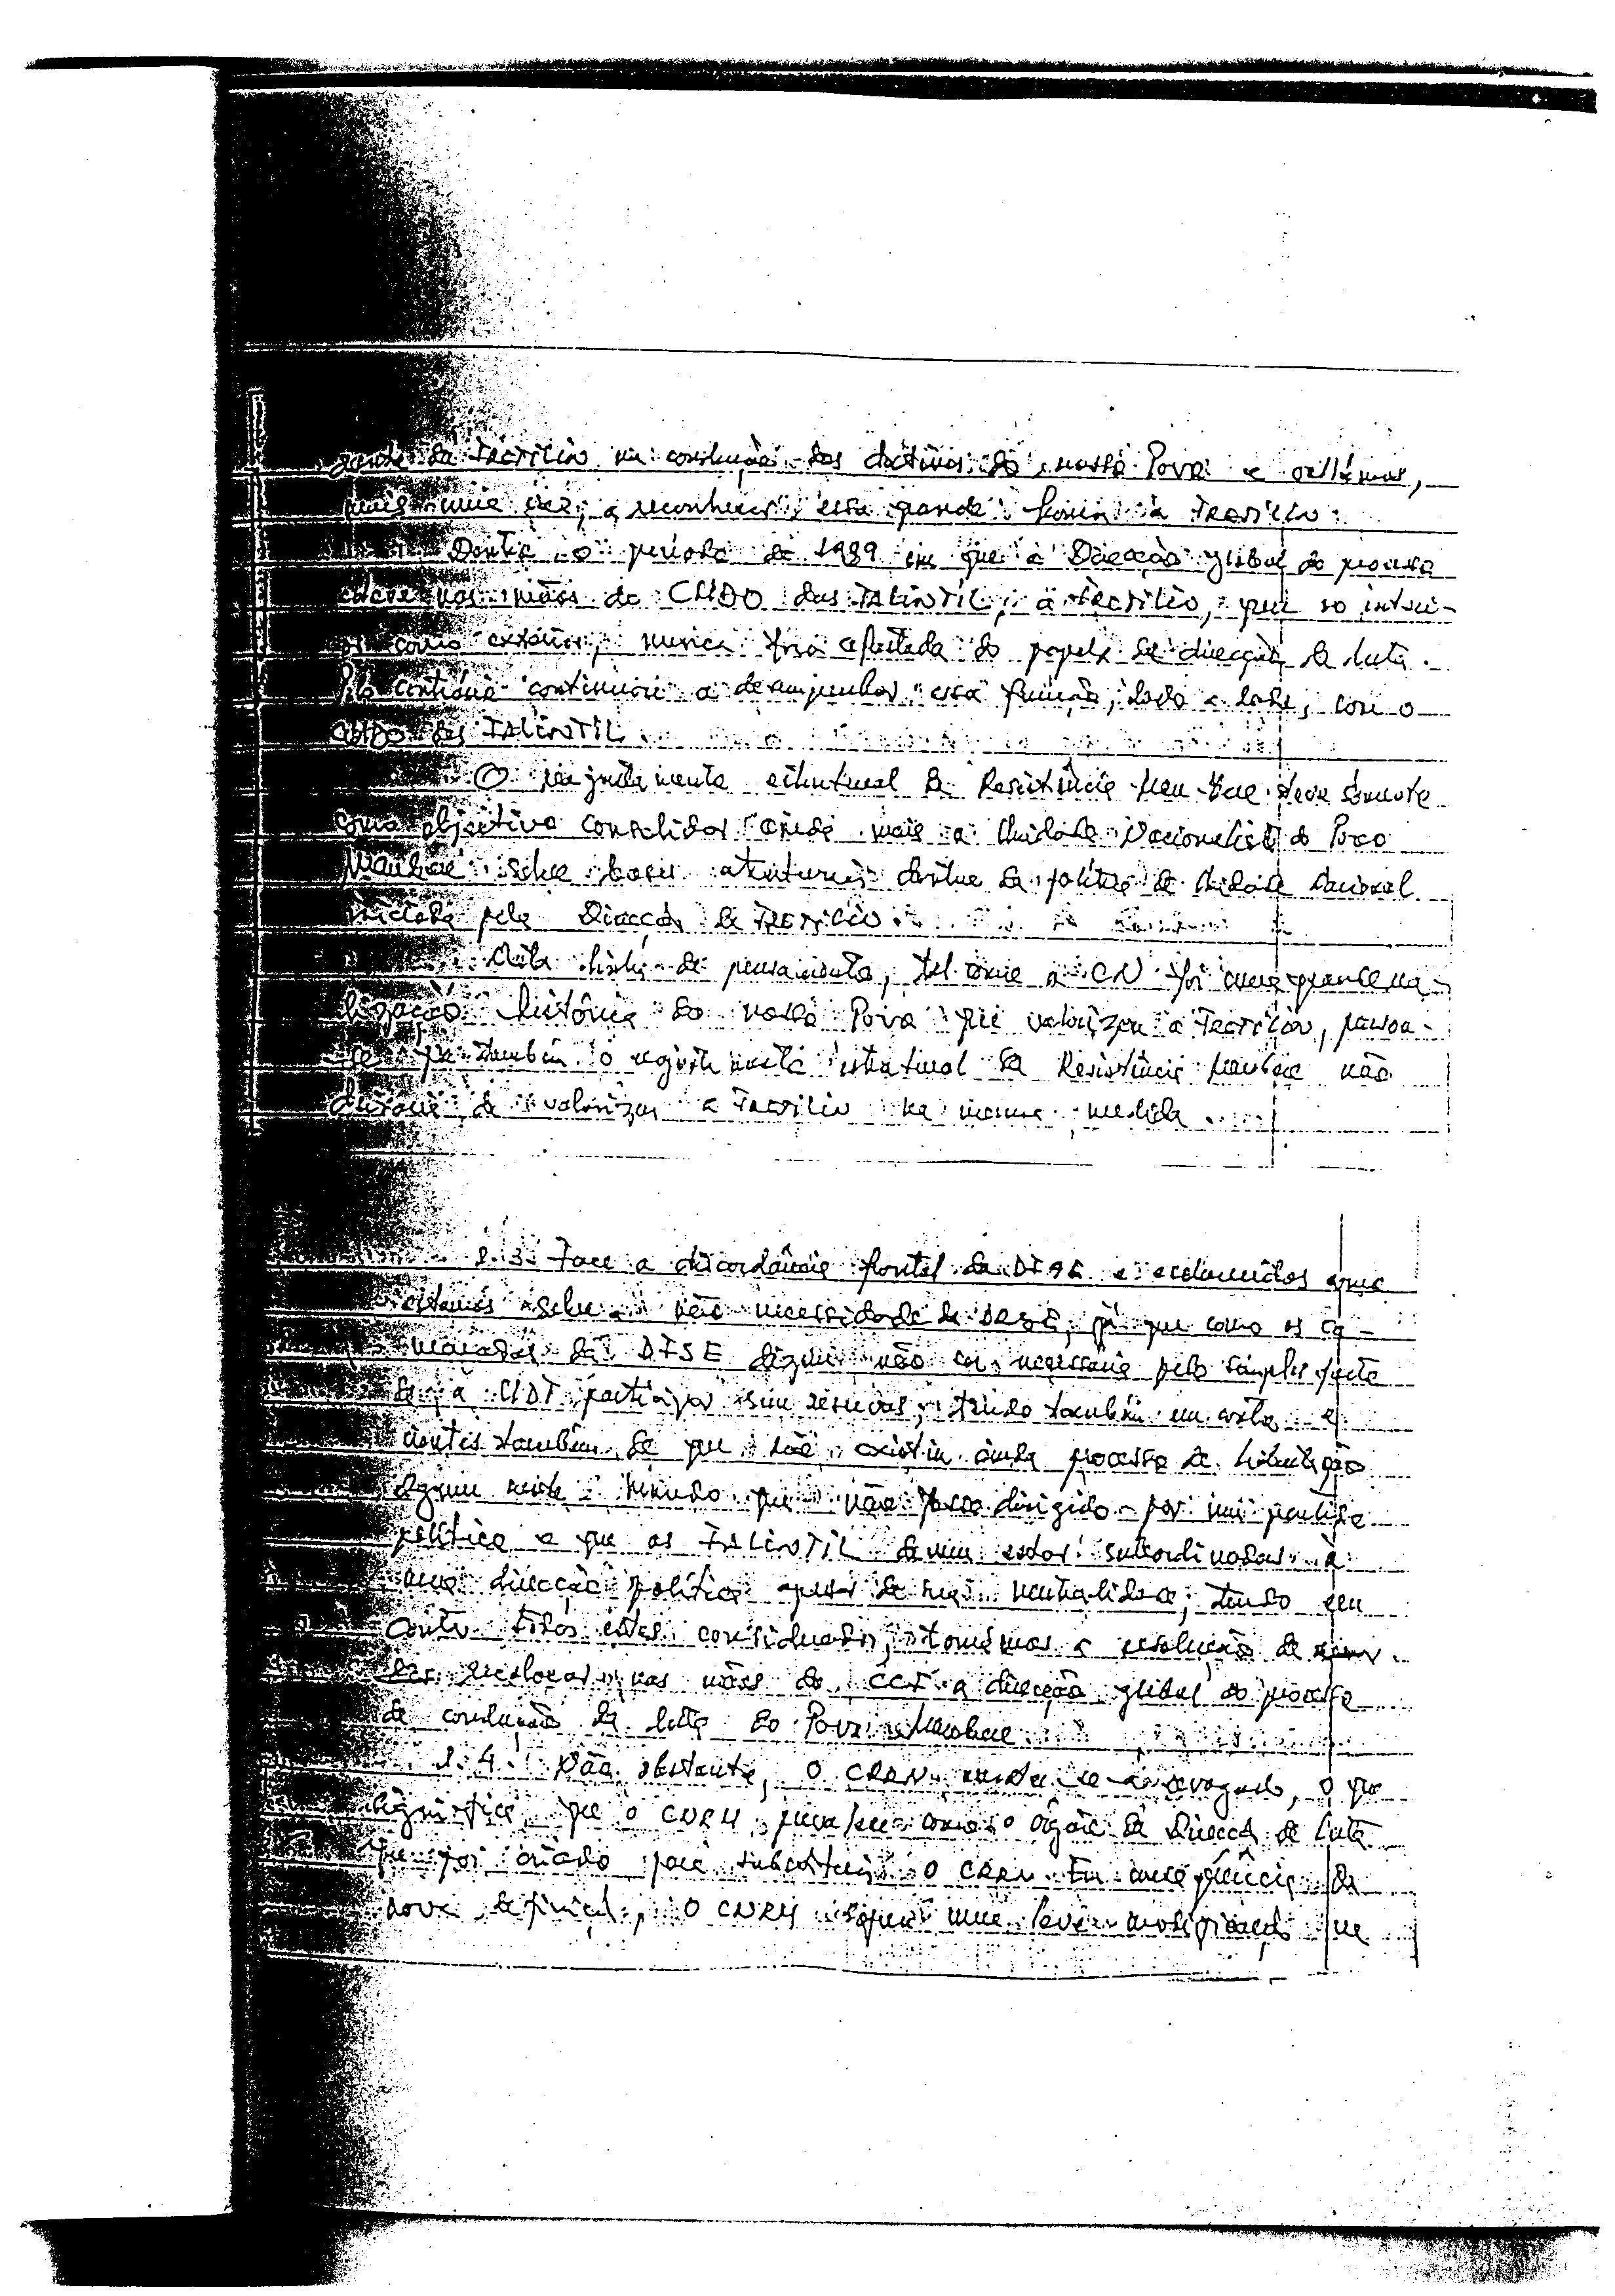 da Fretilin na condução dos destinos do nosso Povo e voltámos,
mais uma vez, a reconhecer essa grande honra à Fretilin.
o período de 1989 em que a Direcção global do processo
nas mãos do CMDO das FALINTIL, a Fretilin, quer no interi-
or como exterior, nunca fora afastada do papel da direcção da luta.
Pelo contrário continuou a desempenhar essa função, lado a lado, com o
CMDO das FALINTIL.
O reajustamento estrutural da Resistência Maubere teve somente
como objectivo consolidar ainda mais a Unidade Nacionalista do Povo
Maubere sobre bases estruturais dentro da política de Unidade Nacional
iniciada pela Direcção da Fretilin.
Nesta linha de pensamento, tal como a CN foi uma grande rea-
lização histórica do nosso Povo que valorizou a Fretilin, pensou-
-se que também o reajustamento estrutural da Resistência Maubere não
deixaria de valorizar a Fretilin na mesma medida.
2.3. Face a discordância frontal da DFSE e esclarecidos que
estamos sobre a não necessidade de já que como os ca-
maradas da DFSE dizem não ser necessário pelo simples facto
de a UDT participar sem reservas, tendo também em vista e
cientes também de que não existiu ainda processo de libertação
algum neste mundo que não fosse dirigido por um partido
político e que as FALINTIL devem estar subordinadas à
uma direcção política apesar da sua neutralidade; tendo em
conta todos estes considerandos, tomámos a resolução de
recolocar nas mãos do CCF a direcção global do processo
de condução da luta do Povo Maubere.
2.4. Não obstante, o CRRN revogado, o que
significa que o CNRM permanece como o órgão da Direcção da Luta
que foi criado para substituir o CRRN. Em consequência da
nova definição, o CNRM sofrerá uma leve modificação na